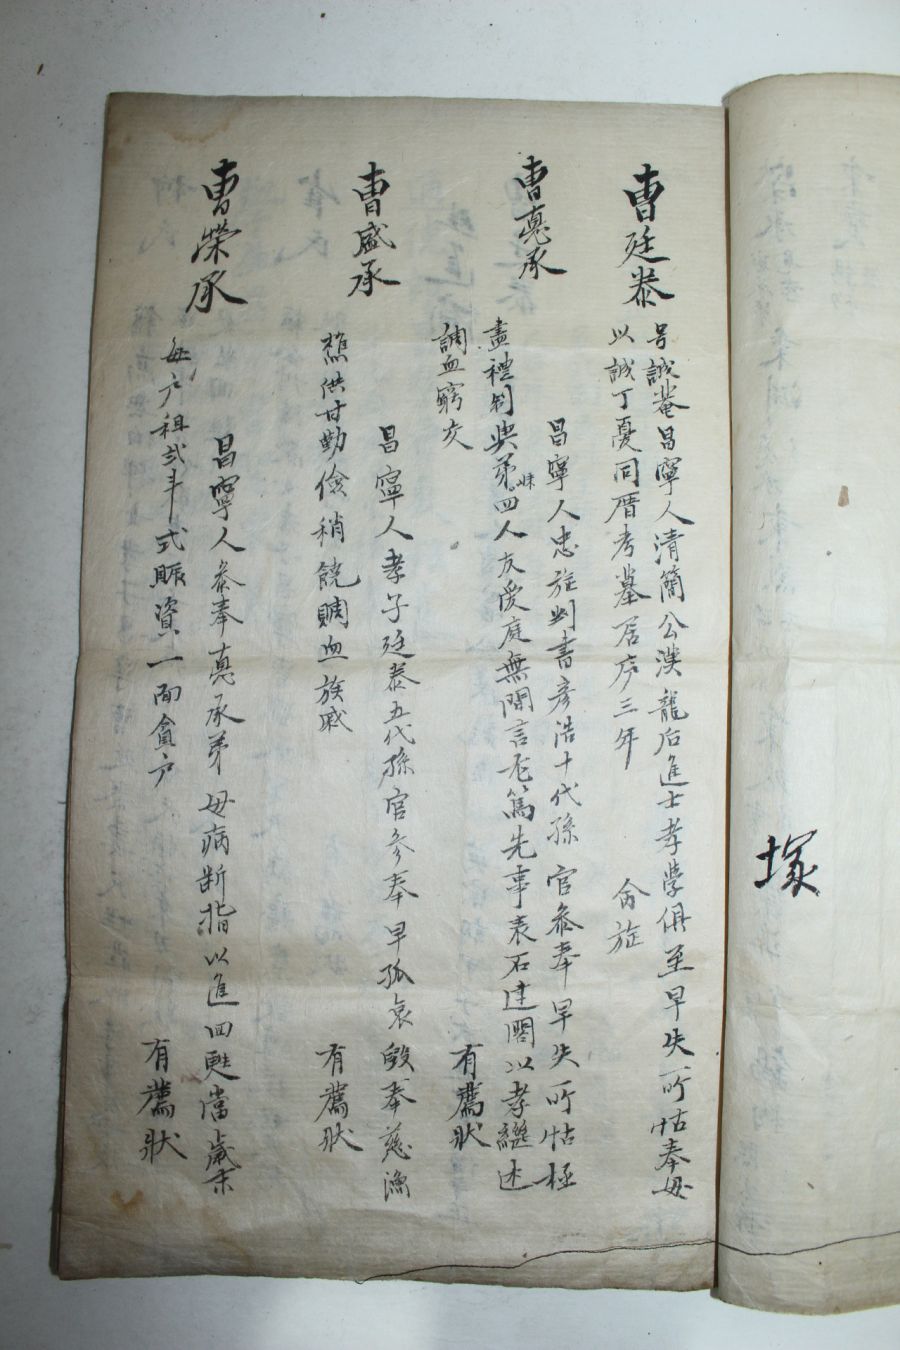 塚
曺廷泰
号誠菴昌寧人淸簡公漢龍后進士孝學俱至早失所怙奉母
以誠丁憂同厝考墓居庐三年 旌
曺悳承
昌寧人忠旌判書彦浩十代孫官叅奉早失所怙極
盡禮制與弟妹四人友愛庭無間言尤篤先事表石建閣以孝繼述
調血窮交
有薦狀
曺盛承
昌寧人孝子廷泰五代孫官参奉早孤哀毁奉慈漁
樵供甘勤儉稍饒賙血族戚
有薦狀
曺榮承
昌寧人叅奉悳承弟母病断指以進回甦當歲末
每户租弍斗式賑資一面貧户
有薦狀